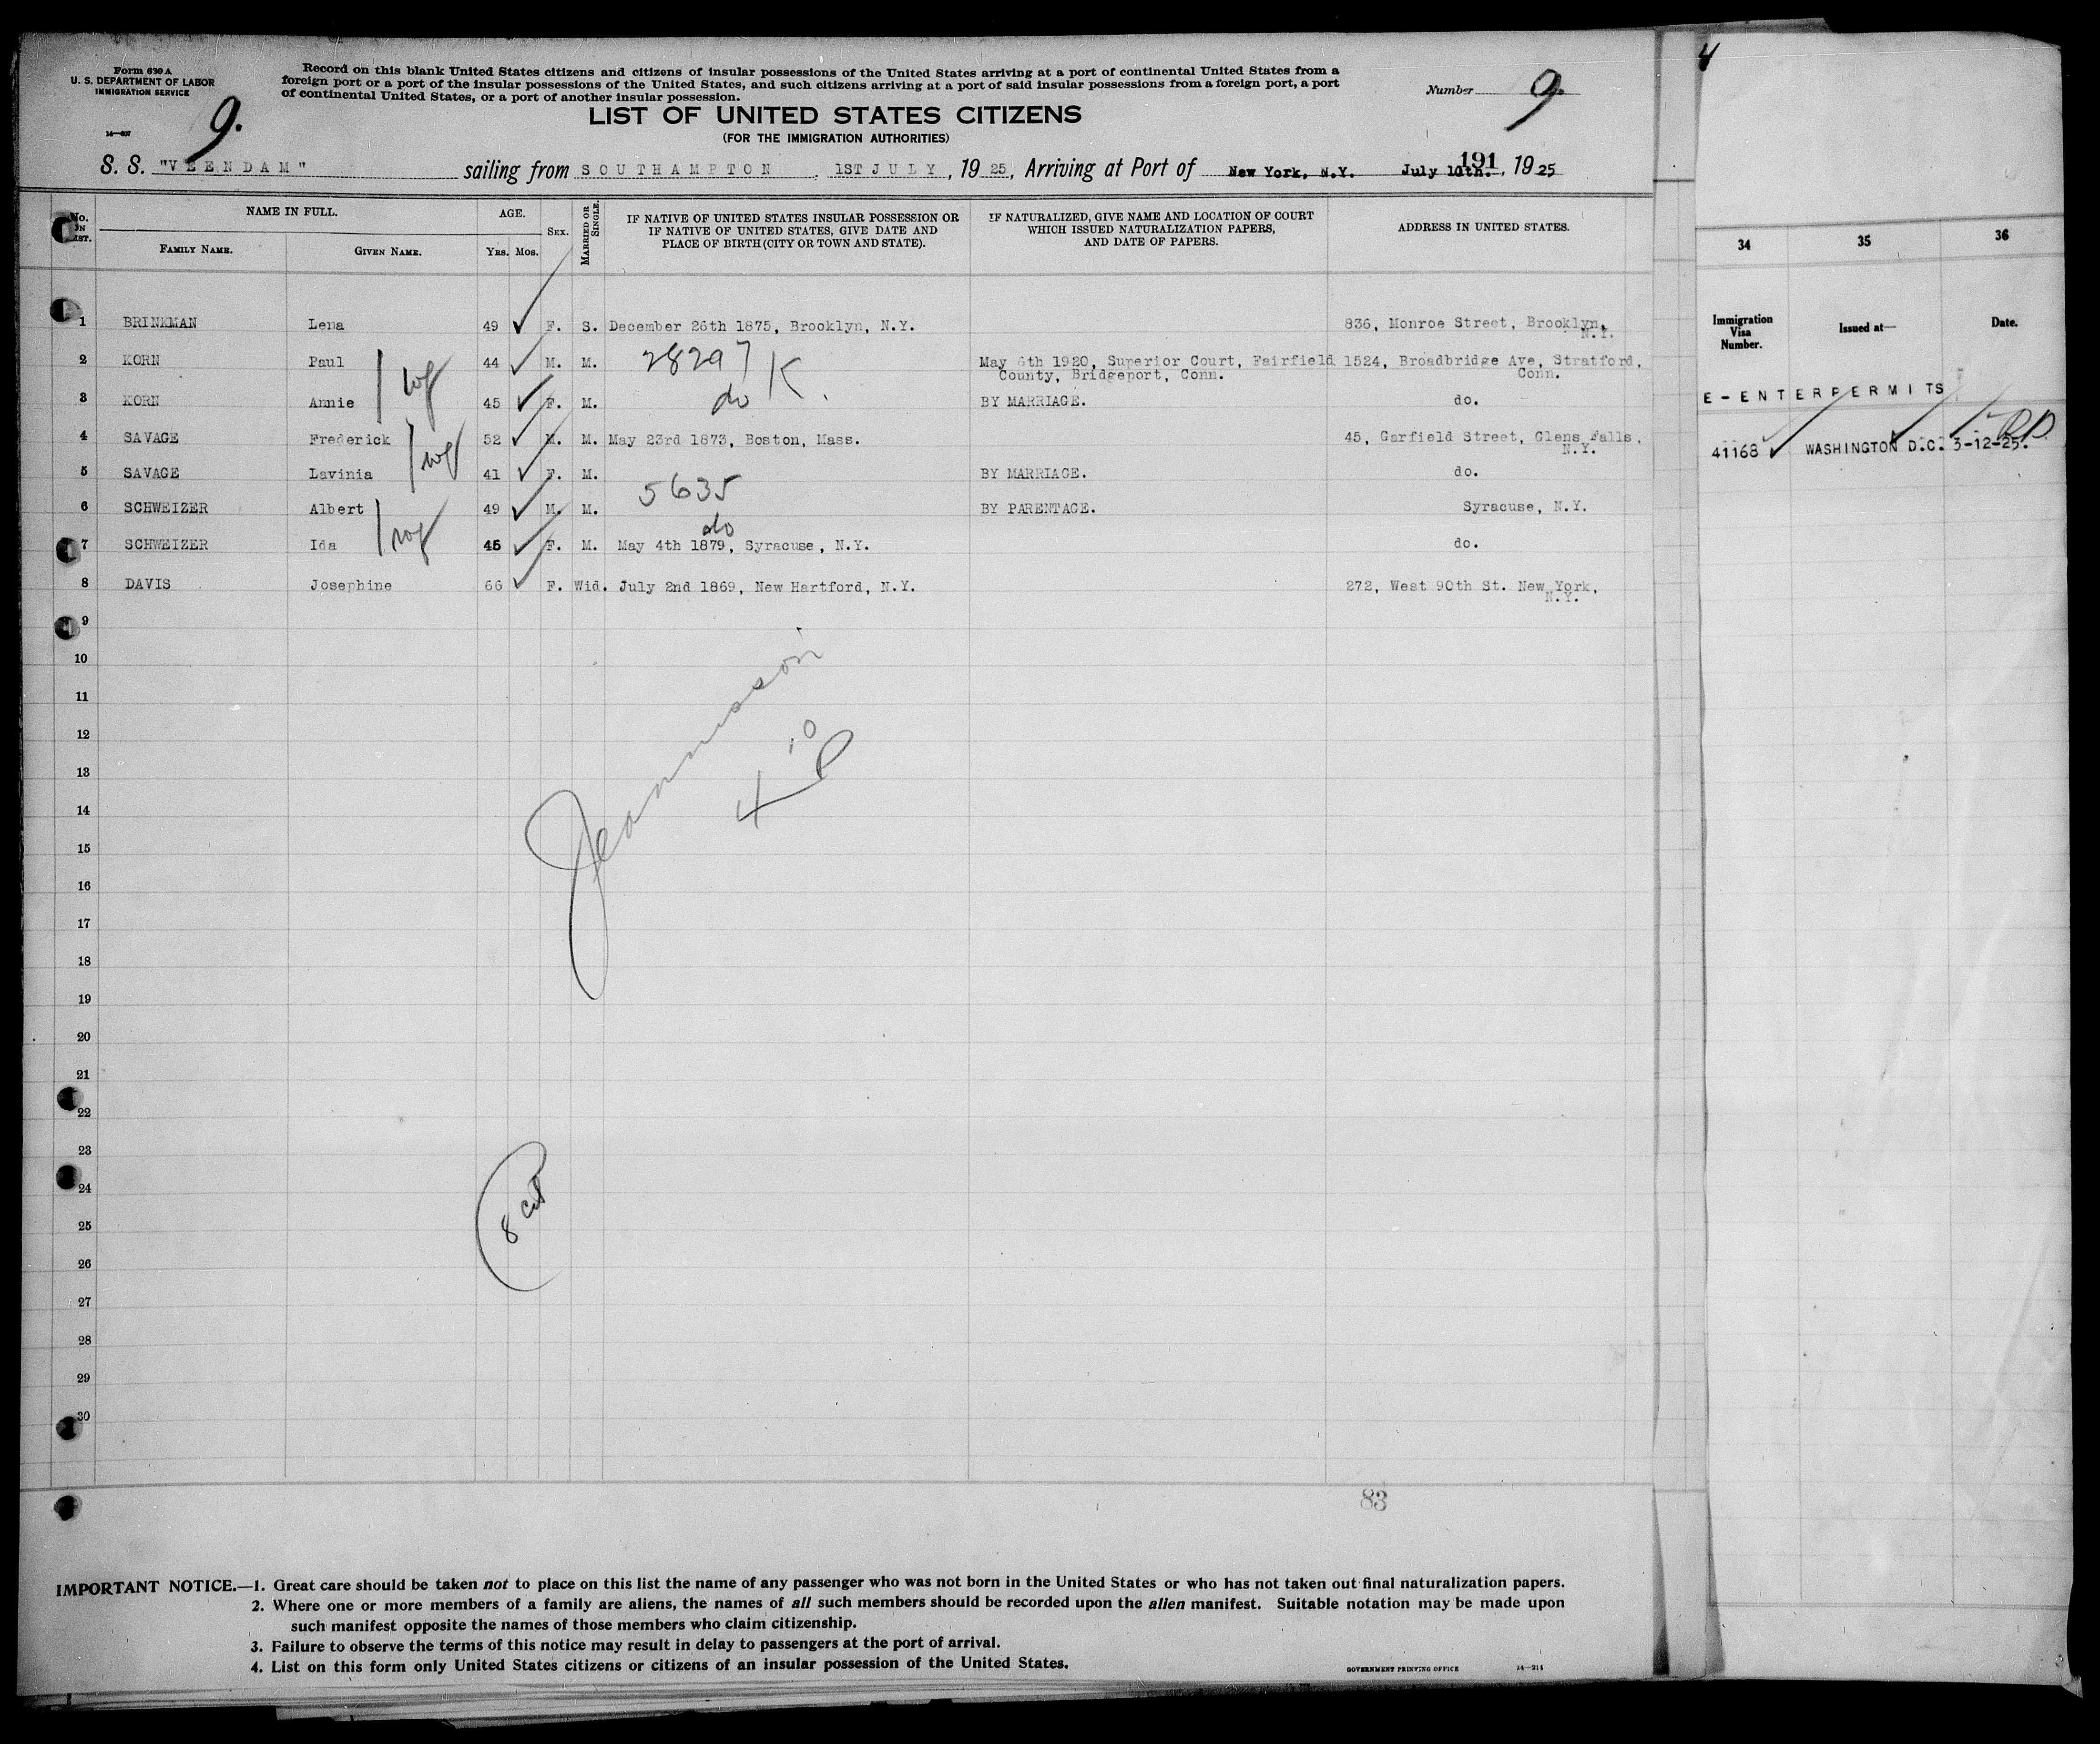 Form 630 A
U. S. DEPARTMENT OF LABOR
IMMIGRATION SERVICE
14—607
9.
Record on this blank United States citizens and citizens of insular possessions of the United States arriving at a port of continental United States from a
foreign port or a port of the insular possessions of the United States, and such citizens arriving at a port of said insular possessions from a foreign port, a port
of continental United States, or a port of another insular possession.
Number 9.
LIST OF UNITED STATES CITIZENS
(FOR THE IMMIGRATION AUTHORITIES)
S. S. "VEENDAM" sailing from SOUTHAMPTON, 1ST JULY, 1925, Arriving at Port of New York, N.Y. July 10th., 1925
191
No. IN LIST. NAME IN FULL. AGE. SEX. MARRIED OR SINGLE. IF NATIVE OF UNITED STATES INSULAR POSSESSION OR IF NATIVE OF UNITED STATES, GIVE DATE AND PLACE OF BIRTH (CITY OR TOWN AND STATE). IF NATURALIZED, GIVE NAME AND LOCATION OF COURT WHICH ISSUED NATURALIZATION PAPERS, AND DATE OF PAPERS. ADDRESS IN UNITED STATES.
FAMILY NAME. GIVEN NAME. YRS. MOS.
1 BRINKMAN Lena 49 F. S. December 26th 1875, Brooklyn, N.Y. 836, Monroe Street, Brooklyn, N.Y.
2 KORN Paul 44 M. M. 28297 K May 6th 1920, Superior Court, Fairfield County, Bridgeport, Conn. 1524, Broadbridge Ave, Stratford, Conn.
3 KORN Annie 45 F. M. do BY MARRIAGE. do.
4 SAVAGE Frederick 52 M. M. May 23rd 1873, Boston, Mass. 45, Garfield Street, Glens Falls, N.Y.
5 SAVAGE Lavinia 41 F. M. BY MARRIAGE. do.
5635
6 SCHWEIZER Albert 49 M. M. BY PARENTAGE. Syracuse, N.Y.
do
7 SCHWEIZER Ida 45 F. M. May 4th 1879, Syracuse, N.Y. do.
8 DAVIS Josephine 66 F. Wid. July 2nd 1869, New Hartford, N.Y. 272, West 90th St. New York, N.Y.
9
10
11
12
13
14
15
16
17
18
19
20
21
22
23
24
8 cit
25
26
27
28
29
30
83
IMPORTANT NOTICE.—1. Great care should be taken not to place on this list the name of any passenger who was not born in the United States or who has not taken out final naturalization papers.
2. Where one or more members of a family are aliens, the names of all such members should be recorded upon the alien manifest. Suitable notation may be made upon
such manifest opposite the names of those members who claim citizenship.
3. Failure to observe the terms of this notice may result in delay to passengers at the port of arrival.
4. List on this form only United States citizens or citizens of an insular possession of the United States.
GOVERNMENT PRINTING OFFICE 14—211
34 35 36
Immigration Visa Number. Issued at— Date.
E-ENTERPERMITS
41168 WASHINGTON D.C. 3-12-25.